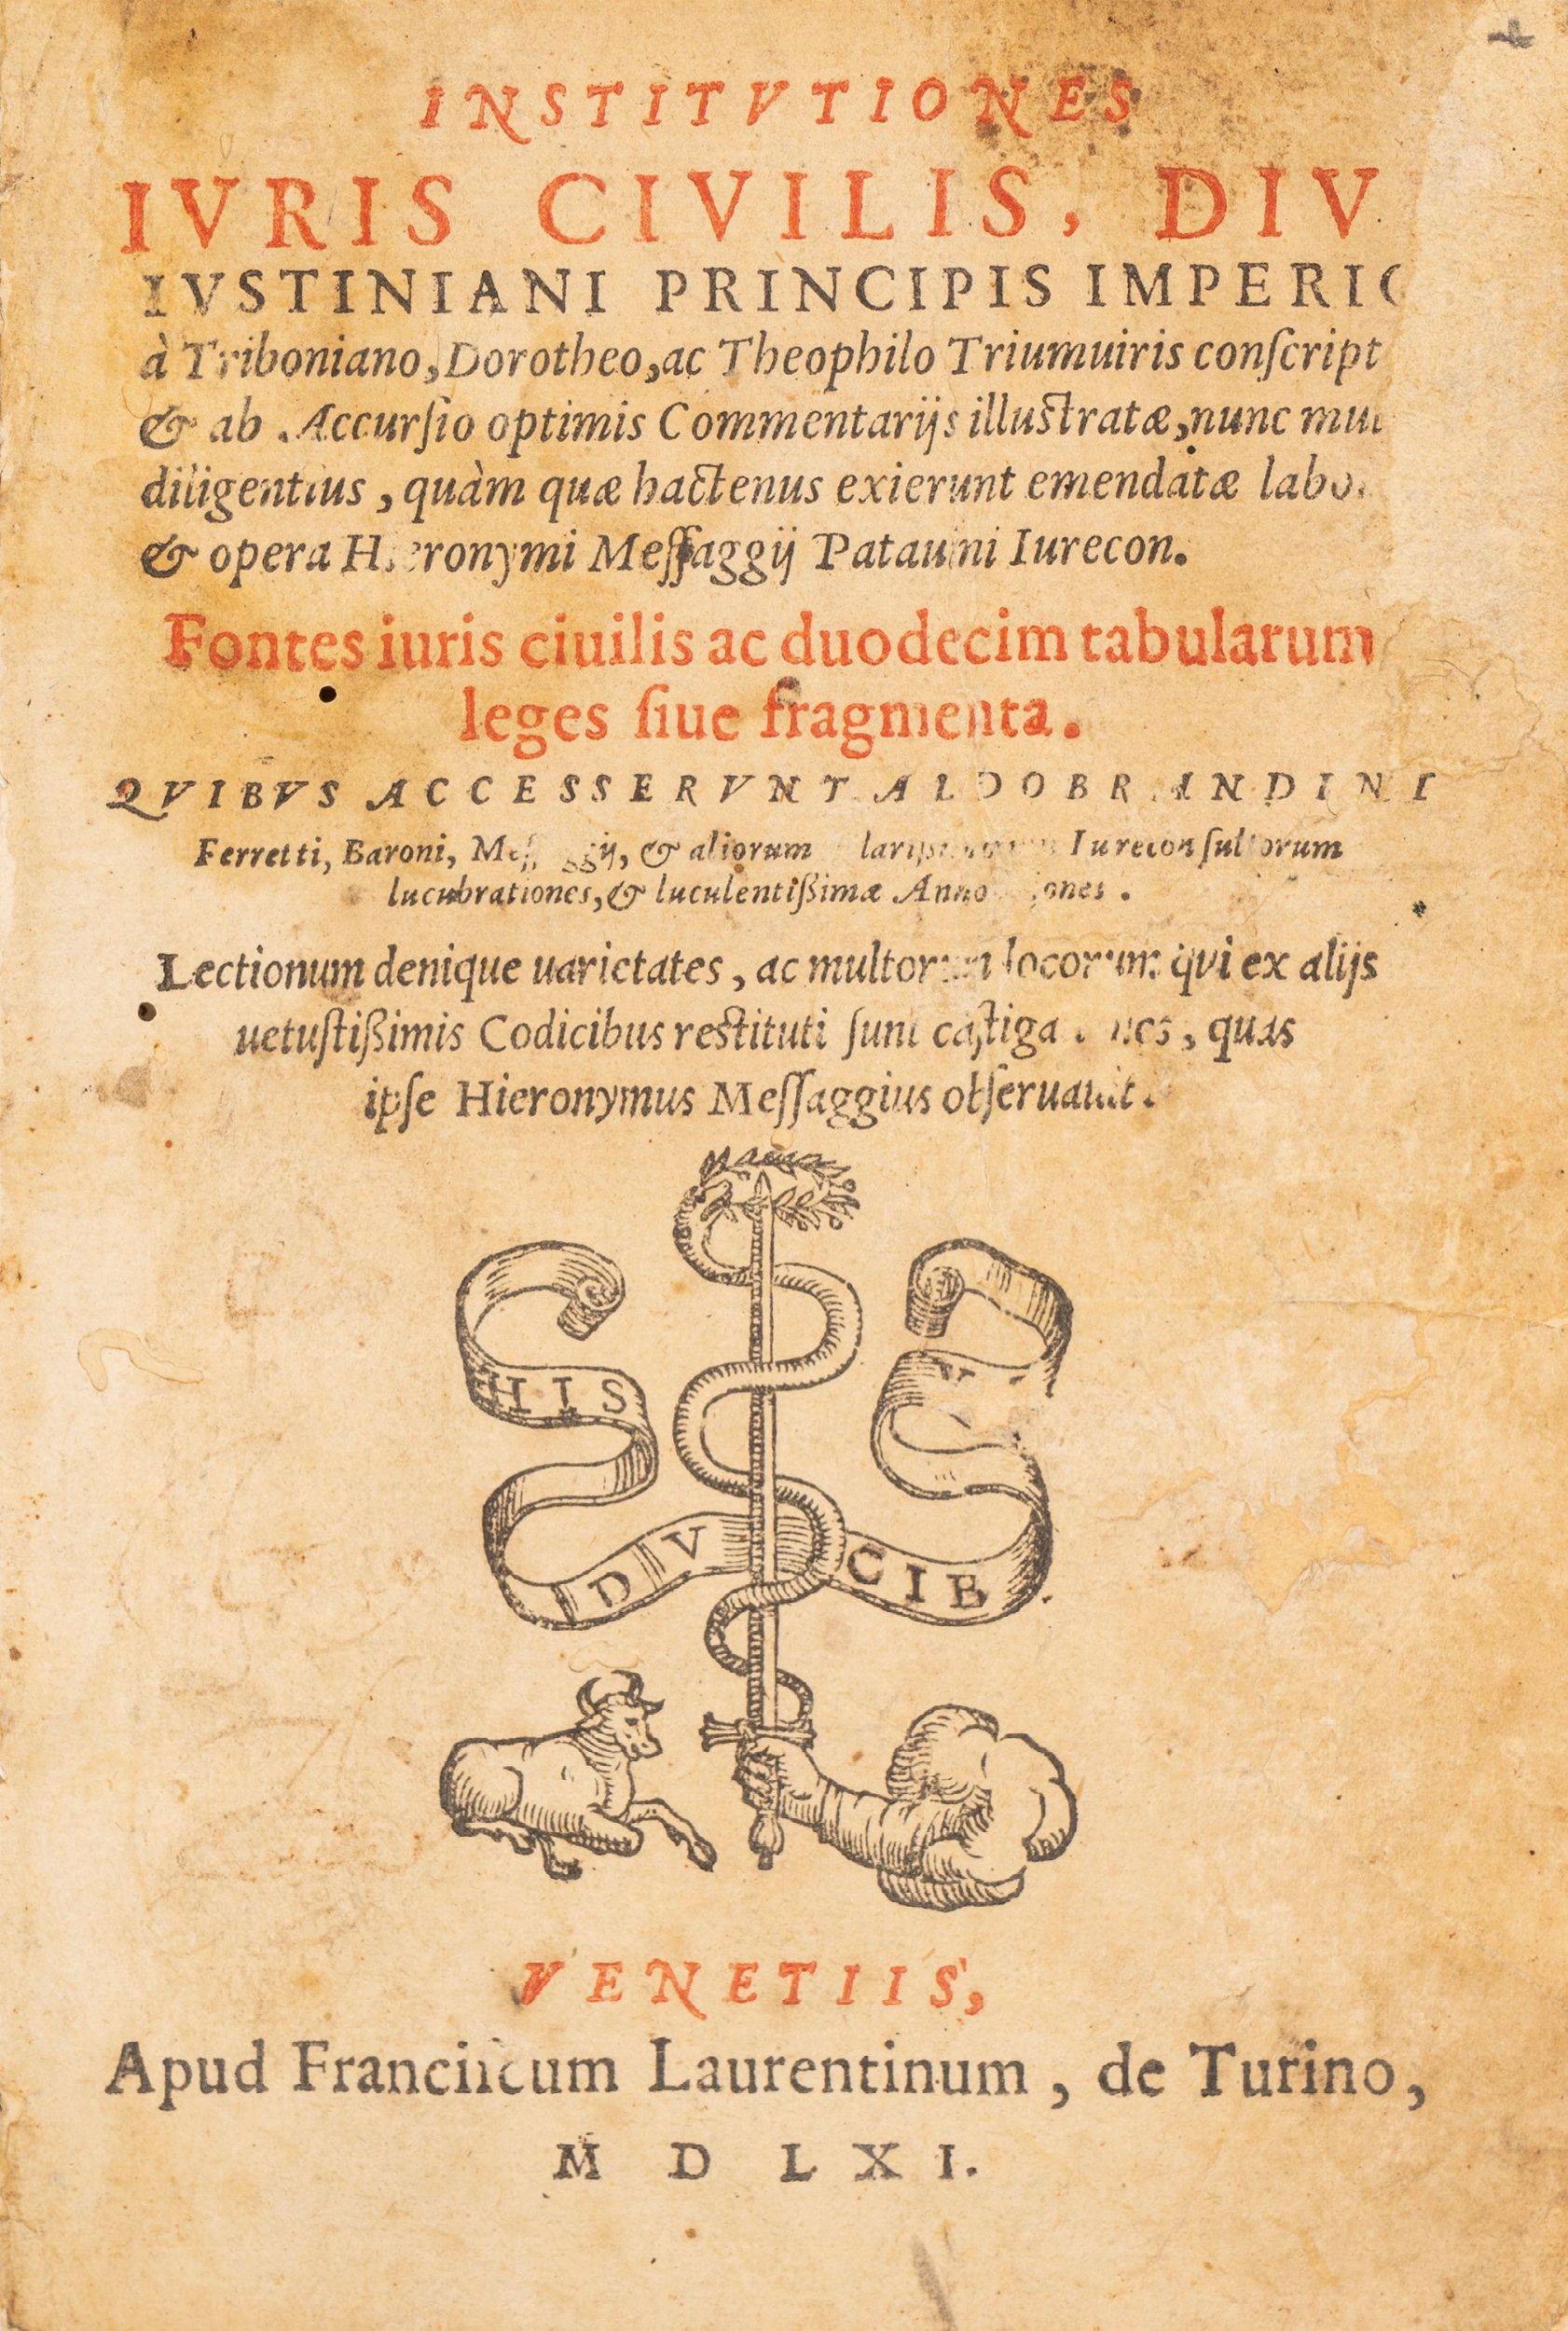 INSTITVTIONES
IVRIS CIVILIS, DIV
IVSTINIANI PRINCIPIS IMPERIO
à Triboniano, Dorotheo, ac Theophilo Triumuiris conſcript
& ab Accurſio optimis Commentarijs illuſtratæ, nunc mul
diligentius, quàm quæ hactenus exierunt emendatæ labo
& opera Hieronymi Meſſaggij Patauini Iurecon.
Fontes iuris ciuilis ac duodecim tabularum
leges ſiue fragmenta.
QVIBVS ACCESSERVNT ALDOBRANDINI
Ferretti, Baroni, Meſſaggij, & aliorum Iureconſultorum
lucubrationes, & luculentißimæ
Lectionum denique uarietates, ac multorum locorum qui ex alijs
uetuſtißimis Codicibus reſtituti ſunt caſtigationes, quas
ipſe Hieronymus Meſſaggius obſeruauit.
HIS
DV CIB
VENETIIS,
Apud Franciſcum Laurentinum, de Turino,
M D L X I.